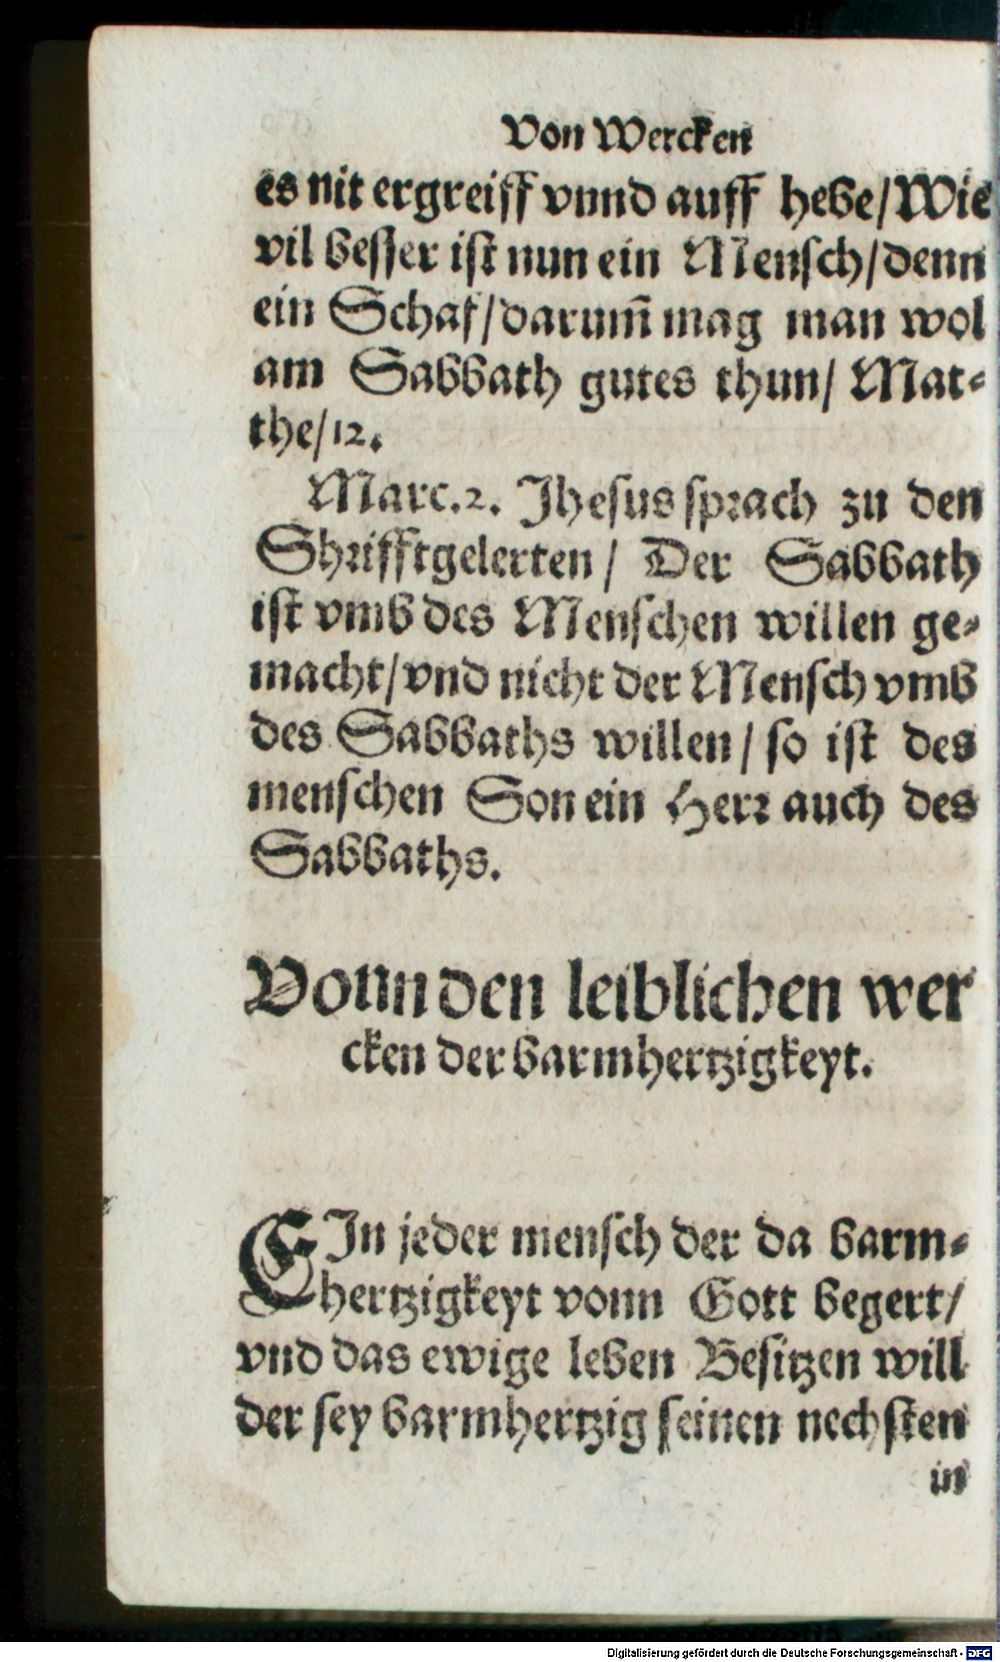 Von Wercken
es nit ergreiff vnnd auff hebe/Wie
vil besser ist nun ein Mensch/denn
ein Schaf/darum̄ mag man wol
am Sabbath gutes thun/ Mat-
the/12.
Marc.2. Jhesus sprach zu den
Shrifftgelerten/ Der Sabbath
ist vmb des Menschen willen ge-
macht/vnd nicht der Mensch vmb
des Sabbaths willen/so ist des
menschen Son ein Herr auch des
Sabbaths.
Vonn den leiblichen wer
cken der barmhertzigkeyt.
EJn jeder mensch der da barm-
hertzigkeyt vonn Gott begert/
vnd das ewige leben Besitzen will
der sey barmhertzig seinen nechsten
in
Digitalisierung gefördert durch die Deutsche Forschungsgemeinschaft - DFG